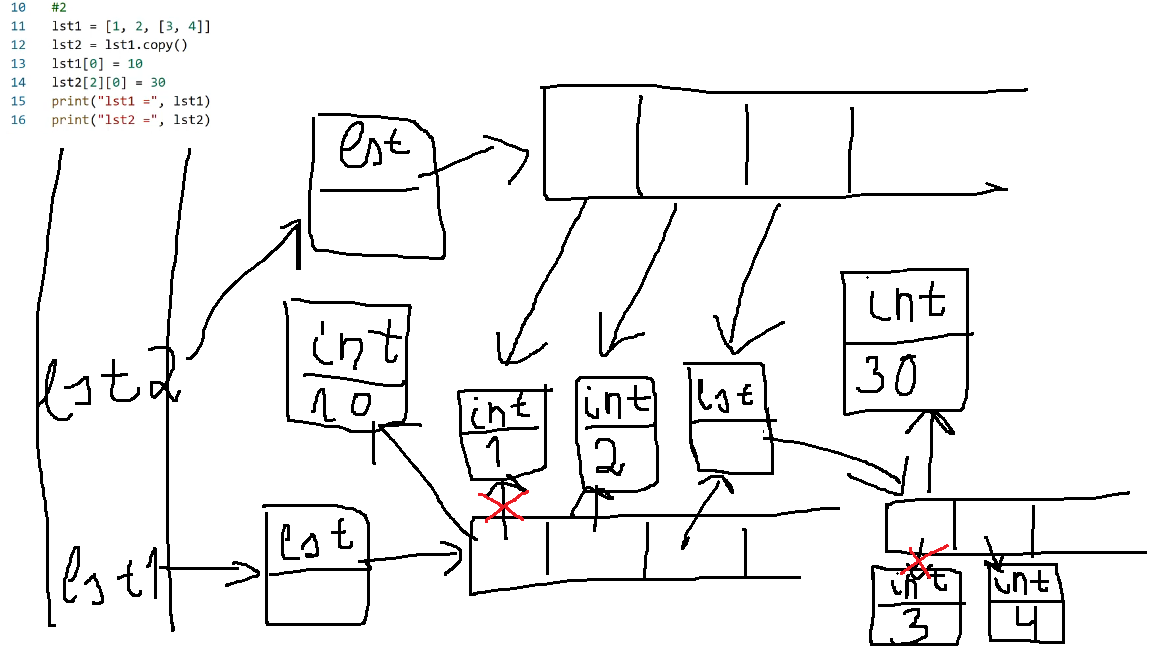 10 #2
11 lst1 = [1, 2, [3, 4]]
12 lst2 = lst1.copy()
13 lst1[0] = 10
14 lst2[2][0] = 30
15 print("lst1 =", lst1)
16 print("lst2 =", lst2)
lst
int
30
int
10
lst2
int
1
int
2
lst
lst
lst1
int
3
int
4